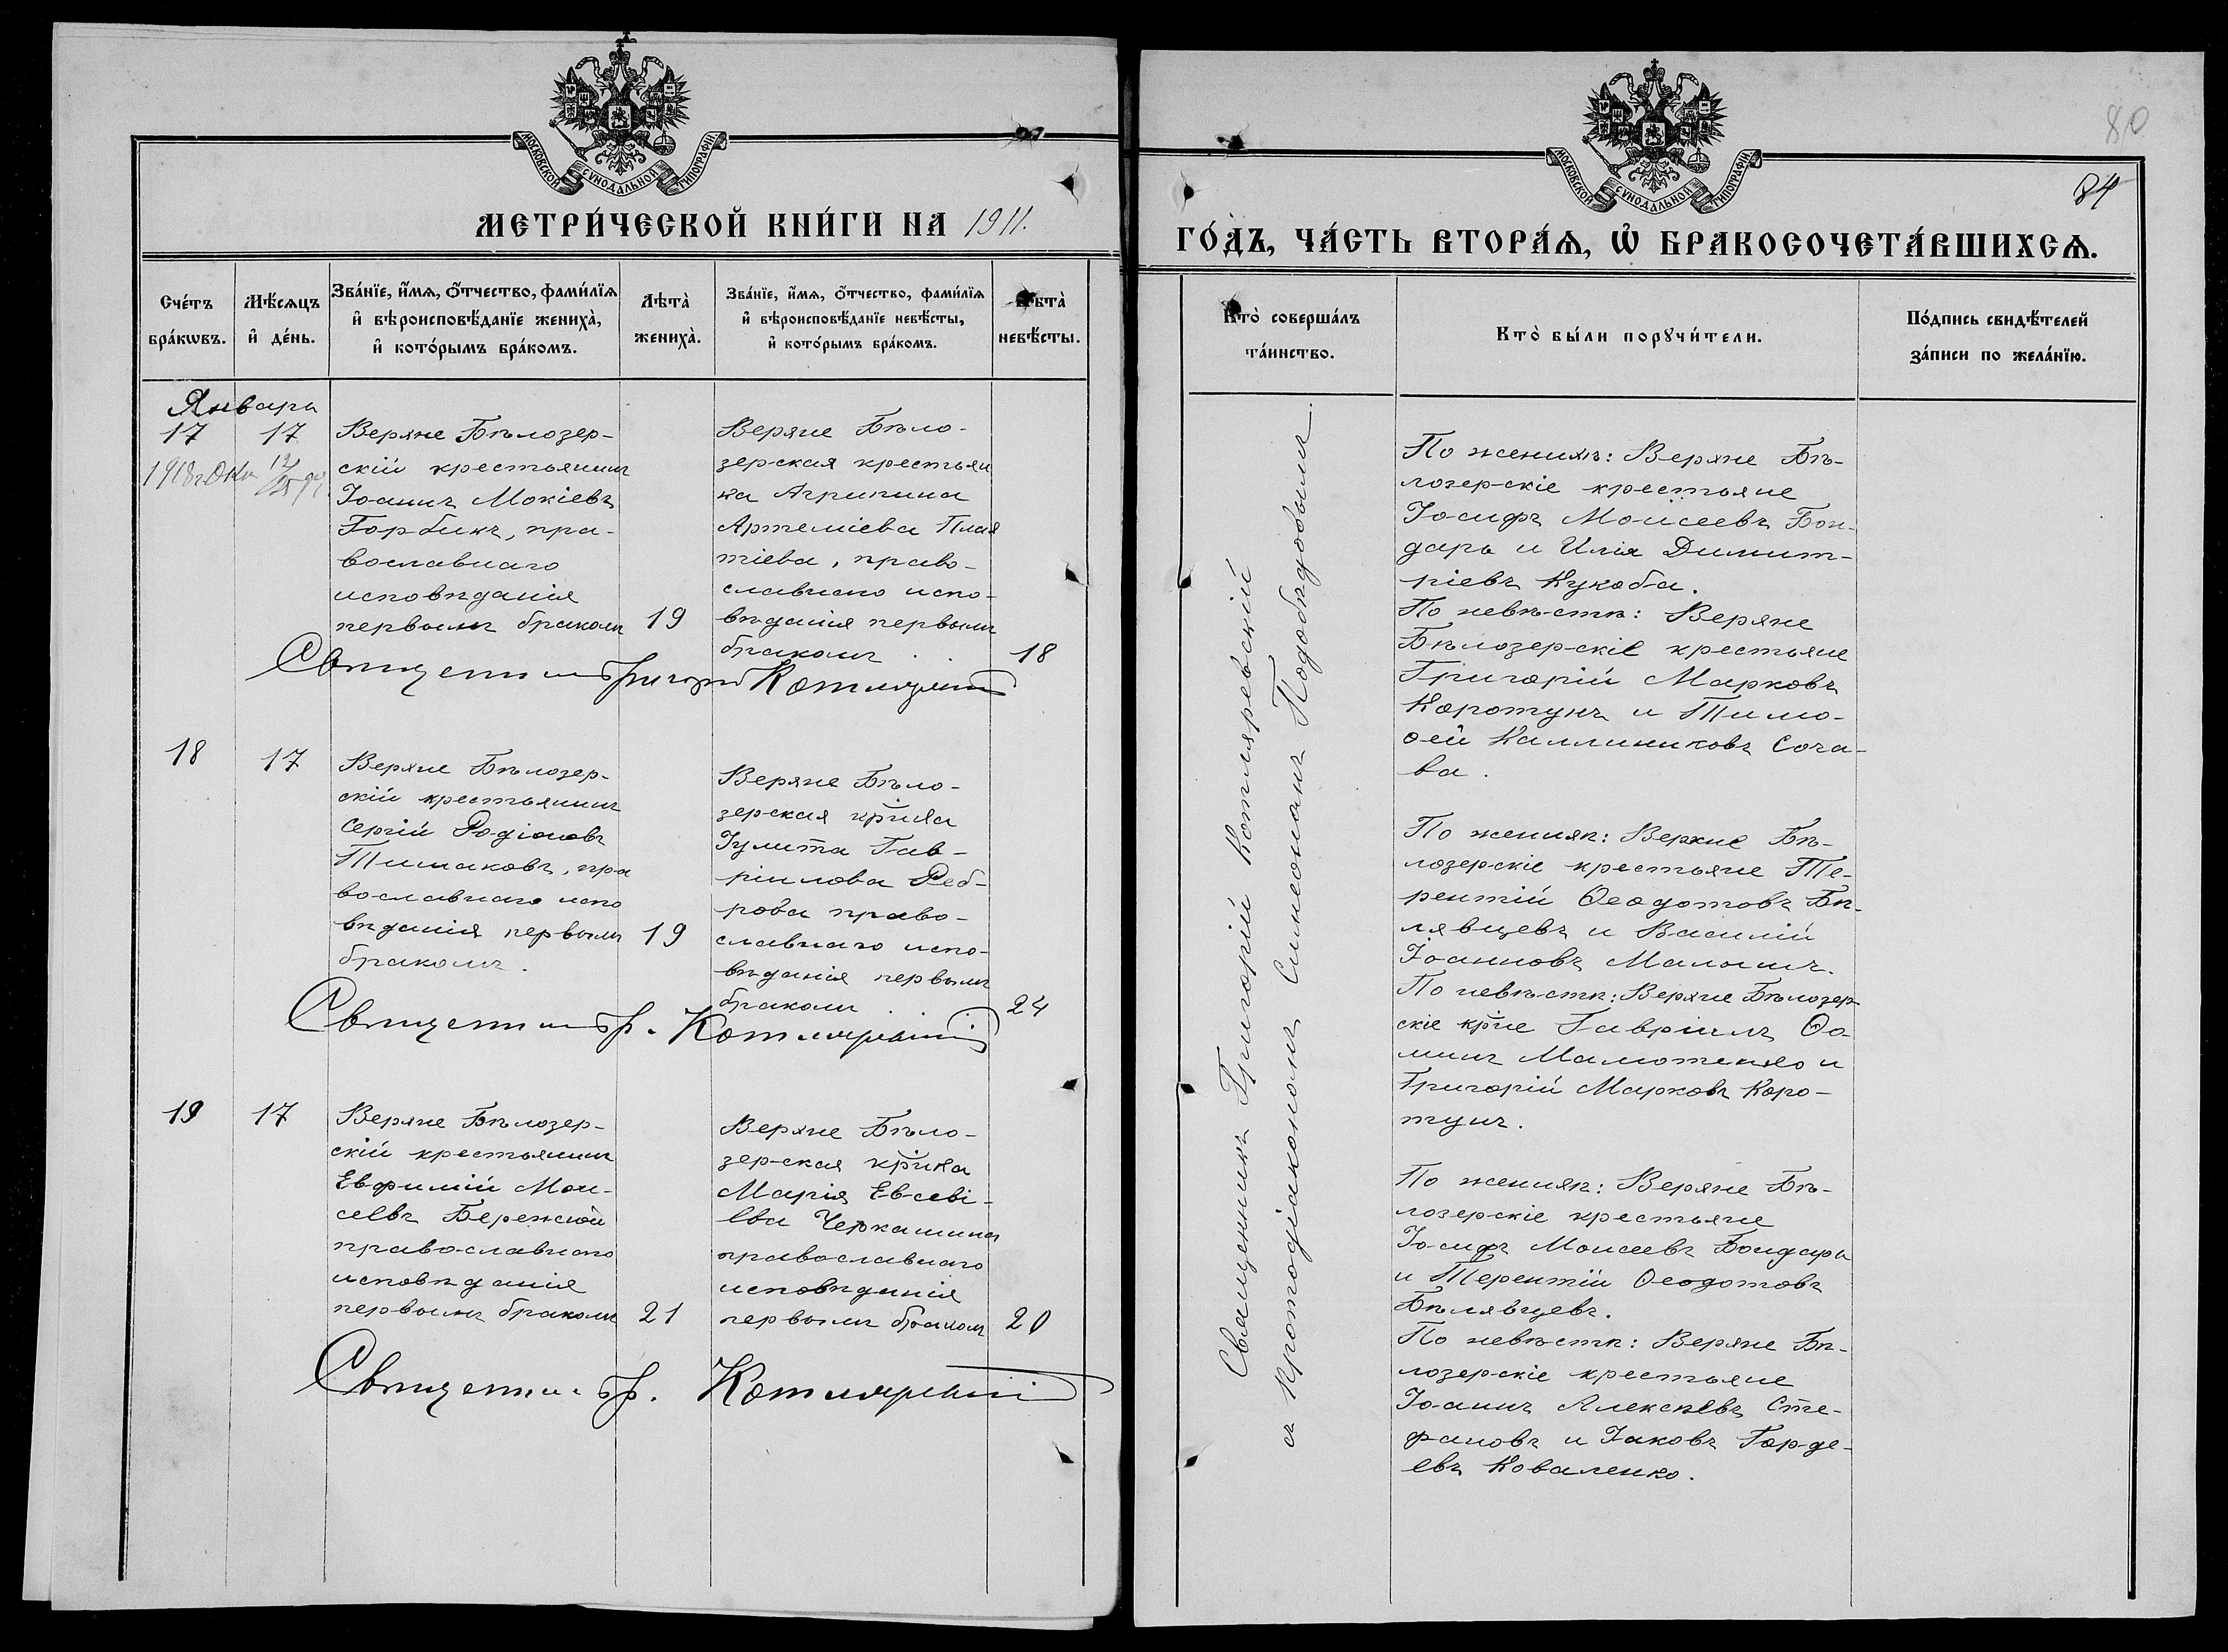 МОСКОВСКОЙ СѴНОДАЛЬНОЙ ТИПОГРАФІИ.
МЕТРИ́ЧЕСКОЙ КНИ́ГИ НА 1911.
Сче́тъ бра́кѡвъ.
Мѣ́сяцъ и҆ де́нь.
Зва́нїе, и҆́мѧ, ѻ҆́тчество, фами́лїѧ
и҆ вѣроисповѣ́данїе жениха̀,
и҆ кото́рымъ бра́комъ.
Лѣта̀ жениха̀.
Зва́нїе, и҆́мѧ, ѻ҆́тчество, фами́лїѧ
и҆ вѣроисповѣ́данїе невѣ́сты,
и҆ кото́рымъ бра́комъ.
Лѣта̀ невѣ́сты.
Январь
17
17
1918 г. Окт 12/25
Верхне Бѣлозер-
скій крестьянинъ
Іоаннъ Мокіевъ
Горбикъ, пра-
вославнаго
исповѣданія
первымъ бракомъ
19
Верхне Бѣло-
зерская крестьян
ка Агрипина
Артеміева
тіева, право-
славнаго испо-
вѣданія первымъ
бракомъ
18
Священникъ Григорій Котляревскій
18
17
Верхне Бѣлозер-
скій крестьянинъ
Сергій Родіоновъ
Тимаковъ, пра
вославнаго испо
вѣданія первымъ
бракомъ.
19
Верхне Бѣло-
зерская кр-нка
Іулита Гав-
ріилова Реб-
рова право-
славнаго испо-
вѣданія первымъ
бракомъ
24
Священникъ Гр. Котляревскій
19
17
Верхне Бѣлозер-
скій крестьянинъ
Евфимій Мои-
сеевъ Бережной
православнаго
исповѣданія
первымъ бракомъ
21
Верхне Бѣло-
зерская кр-нка
Марія Евсеві-
ева Черкашина
православнаго
исповѣданія
первымъ бракомъ
20
Священникъ Гр. Котляревскій
80
84
МОСКОВСКОЙ СѴНОДАЛЬНОЙ ТИПОГРАФІИ.
ГО́ДЪ, ЧА́СТЬ ВТОРА́Ѧ, Ѡ҆ БРАКОСОЧЕТА́ВШИХСѦ.
Кто̀ соверша́лъ
та́инство.
Кто̀ бы́ли порꙋчи́тели.
По́дпись свидѣ́телей
за́писи по жела́нїю.
Священникъ Григорій Котляревскій
съ протодіакономъ Симеономъ Подобѣдовымъ.
По женихѣ: Верхне Бѣ-
лозерскіе крестьяне
Іосифъ Моисеевъ Бон-
дарь и Илія Димит-
ріевъ Кукоба.
По невѣстѣ: Верхне
Бѣлозерскіе крестьяне
Григорій Марковъ
Коротунъ и Тимо-
ѳей Каллиниковъ Соча-
ва.
По женихѣ: Верхне Бѣ-
лозерскіе крестьяне Те-
рентій Ѳеодотовъ Бѣ-
лявцевъ и Василій
Іоанновъ Малышъ.
По невѣстѣ: Верхне Бѣлозер-
скіе кр-не Гавріилъ Ѳо-
минъ Мамотенко и
Григорій Марковъ Коро-
тунъ.
По женихѣ: Верхне Бѣ-
лозерскіе крестьяне
Іосифъ Моисеевъ Бондарь
и Терентій Ѳеодотовъ
Бѣлявцевъ.
По невѣстѣ: Верхне Бѣ-
лозерскіе крестьяне
Іоаннъ Алексѣевъ Сте-
фановъ и Іаковъ Горде-
евъ Коваленко.